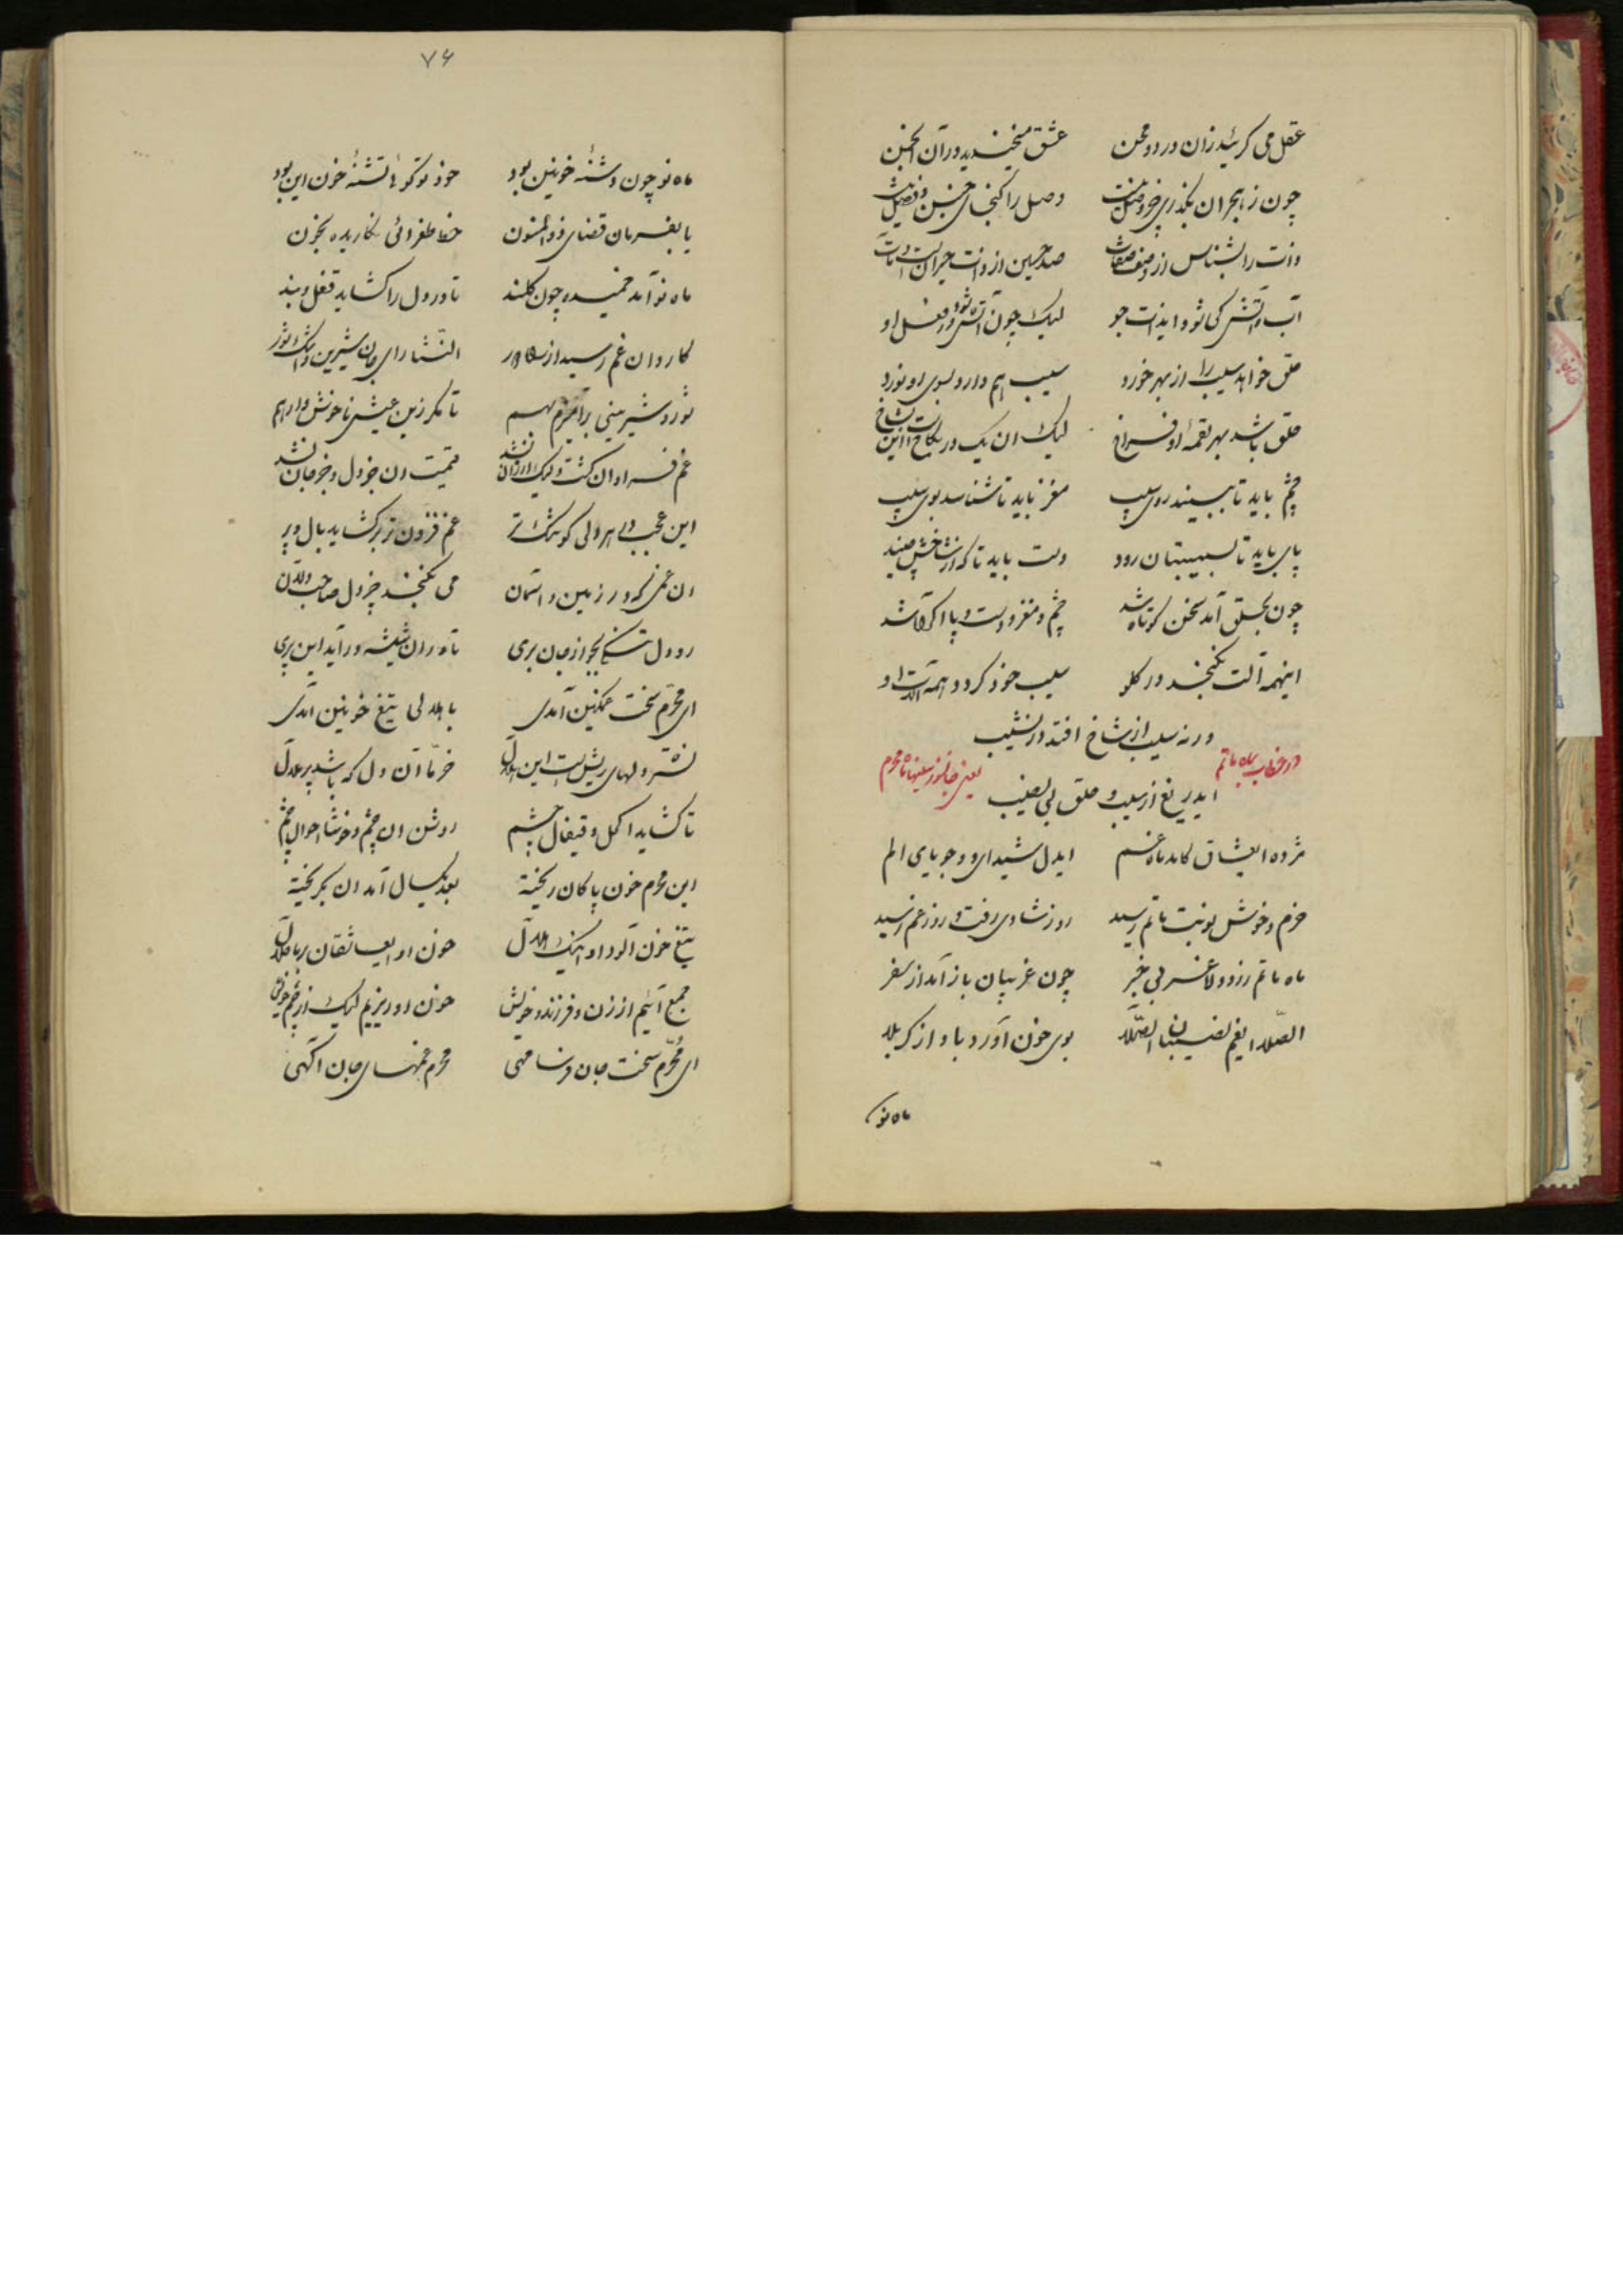 عقل می گرید زان درد و محن عشق میخندید در آن انجمن
چون ز هجران بگذری جز وصل نیست وصل را گنجای جنس و فصل نیست
ذات را بشناس از وصف صفات صد حسین از ذات حیران است و مات
آب و آتش کی شود ایذات جو لیک چون آتش شود در فعل او
حلق خواهد سیب را از بهر خورد سیب هم دارد بسوی او نورد
حلق باشد بهر لقمهٔ او فراخ لیک ان یک در
چشم باید تا ببیند روی سیب مغز باید تا شناسد بوی سیب
پای باید تا بسیبستان رود دست باید تا که از شاخش چیند
چون بحلق آمد سخن کوتاه شد چشم و مغز و دست و پا آگاه شد
اینهمه آلت نگنجد در گلو سیب خود گردد همه آلات او
ورنه سیب از شاخ افتد در نشیب
ایدریغ از سیب و حلق بی نصیب
در خطاب بماه ماتم یعنی جانسوز سلیمانه محرم
مژده ایعشاق کامد ماه غم ایدل شیدای وجویای الم
خرم و خوش نوبت ماتم رسید روز شادی رفت و روز غم رسید
ماه ماتم زرد و لاغر بی خبر چون غریبان باز آمد از سفر
الصّلا ایغم نصیبان الصّلا بوی خون آورد باد از کربلا
ماه نو
۷۶
ماه نو چون دشنهٔ خونین بود خود تو گوئی تشنهٔ خون این بود
یا بفرمان قضای ذوالمنون خط طغرائی نگاریده بخون
ماه نو آمد خمیده چون کلند تا در دل را گشاید قفل و بند
کاروان غم رسید از راه دور النثار ای جان شیرین و اشک شور
شور و شیرینی برآمیزم بهم تا مگر زین عیش ناخوش وارهم
غم فراوان گشت و لیک ارزان نشد قیمت ان جز دل و جز جان نشد
این عجب در هر دلی کو تنگ تر غم فزون تر برگشاید بال و پر
ان غمی که در زمین و آسمان می نگنجد جز دل صاحبدلان
رو دل تنگی بجو از جان بری تا در ان شیشه در آید این پری
ای محرّم سخت غمگین آمدی با هلالی تیغ خونین آمدی
نشتر دلهای ریش است این هلال خرّما آن دل که باشد پر ملال
تا گشاید اکحل و قیفال چشم روشن ان چشم و خوشا احوال چشم
این محرم خون پاکان ریخته بعد یکسال آمد ان بگریخته
تیغ خون آلود او اینک هلال خون او ایعاشقان بر ما حلال
جمع آئیم از زن و فرزند و خویش خون او ریزیم لیک از چشم خویش
ای محرّم سخت جان فرسا مهی محرم غمهای جان آگهی